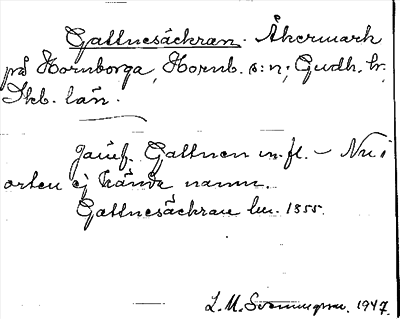 Gattnesäckran. Åkermark
på Hornborga, Hornb. s:n; Gudh. hr,
Skb. län.
Jämf. Gattnen m. fl. – Nu i
orten ej kända namn.
Gattnesäckran lm. 1855.
L. M. Svenungsson. 1947.